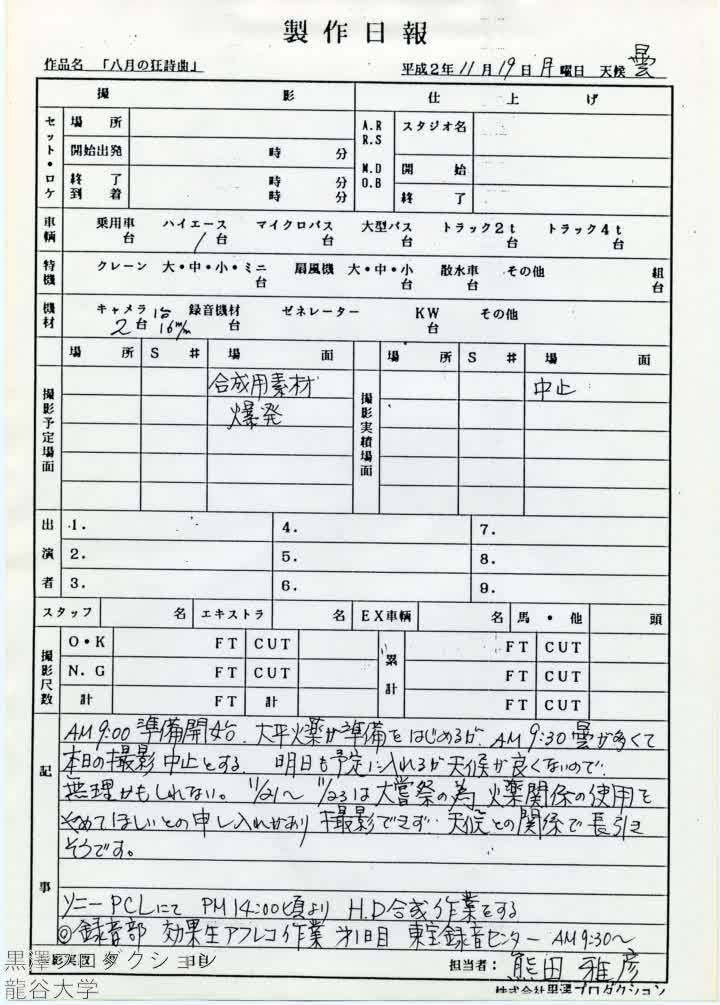 製作日報
作品名 「八月の狂詩曲」 平成2年11月19日月曜日 天候 曇
撮 影 仕 上 げ
セット・ロケ 場 所 A.R R.S M.D O.B スタジオ名
開始出発 時 分 開 始
終 了 時 分 終 了
到 着 時 分
車輌 乗用車 台 ハイエース 1台 マイクロバス 台 大型バス 台 トラック2t 台 トラック4t 台
特機 クレーン 大・中・小・ミニ 台 扇風機 大・中・小 台 散水車 台 その他 組 台
機材 キャメラ 2台 16m/m 1台 録音機材 台 ゼネレーター KW 台 その他
場 所 S # 場 面 場 所 S # 場 面
撮影予定場面 合成用素材 撮影実績場面 中止
爆発
出演者 1. 4. 7.
2. 5. 8.
3. 6. 9.
スタッフ 名 エキストラ 名 EX車輌 名 馬・他 頭
撮影尺数 O・K FT CUT 累計 FT CUT
N.G FT CUT FT CUT
計 FT 計 FT CUT
記事
AM9:00 準備開始. 大平火薬が準備をはじめるが. AM9:30 曇が多くて
本日の撮影中止とする. 明日も予定に入れるが天候が良くないので.
無理かもしれない。 11/21〜11/23は大嘗祭の為 火薬関係の使用を
やめてほしいとの申し入れがあり 撮影できず. 天候との関係で長引き
そうです。
ソニーPCLにて PM14:00頃より H.D合成作業をする
◎録音部 効果生アフレコ作業 才1日目 東宝録音センター AM9:30〜
担当者: 熊田雅彦
株式会社黒澤プロダクション
黒澤プロダクション
龍谷大学